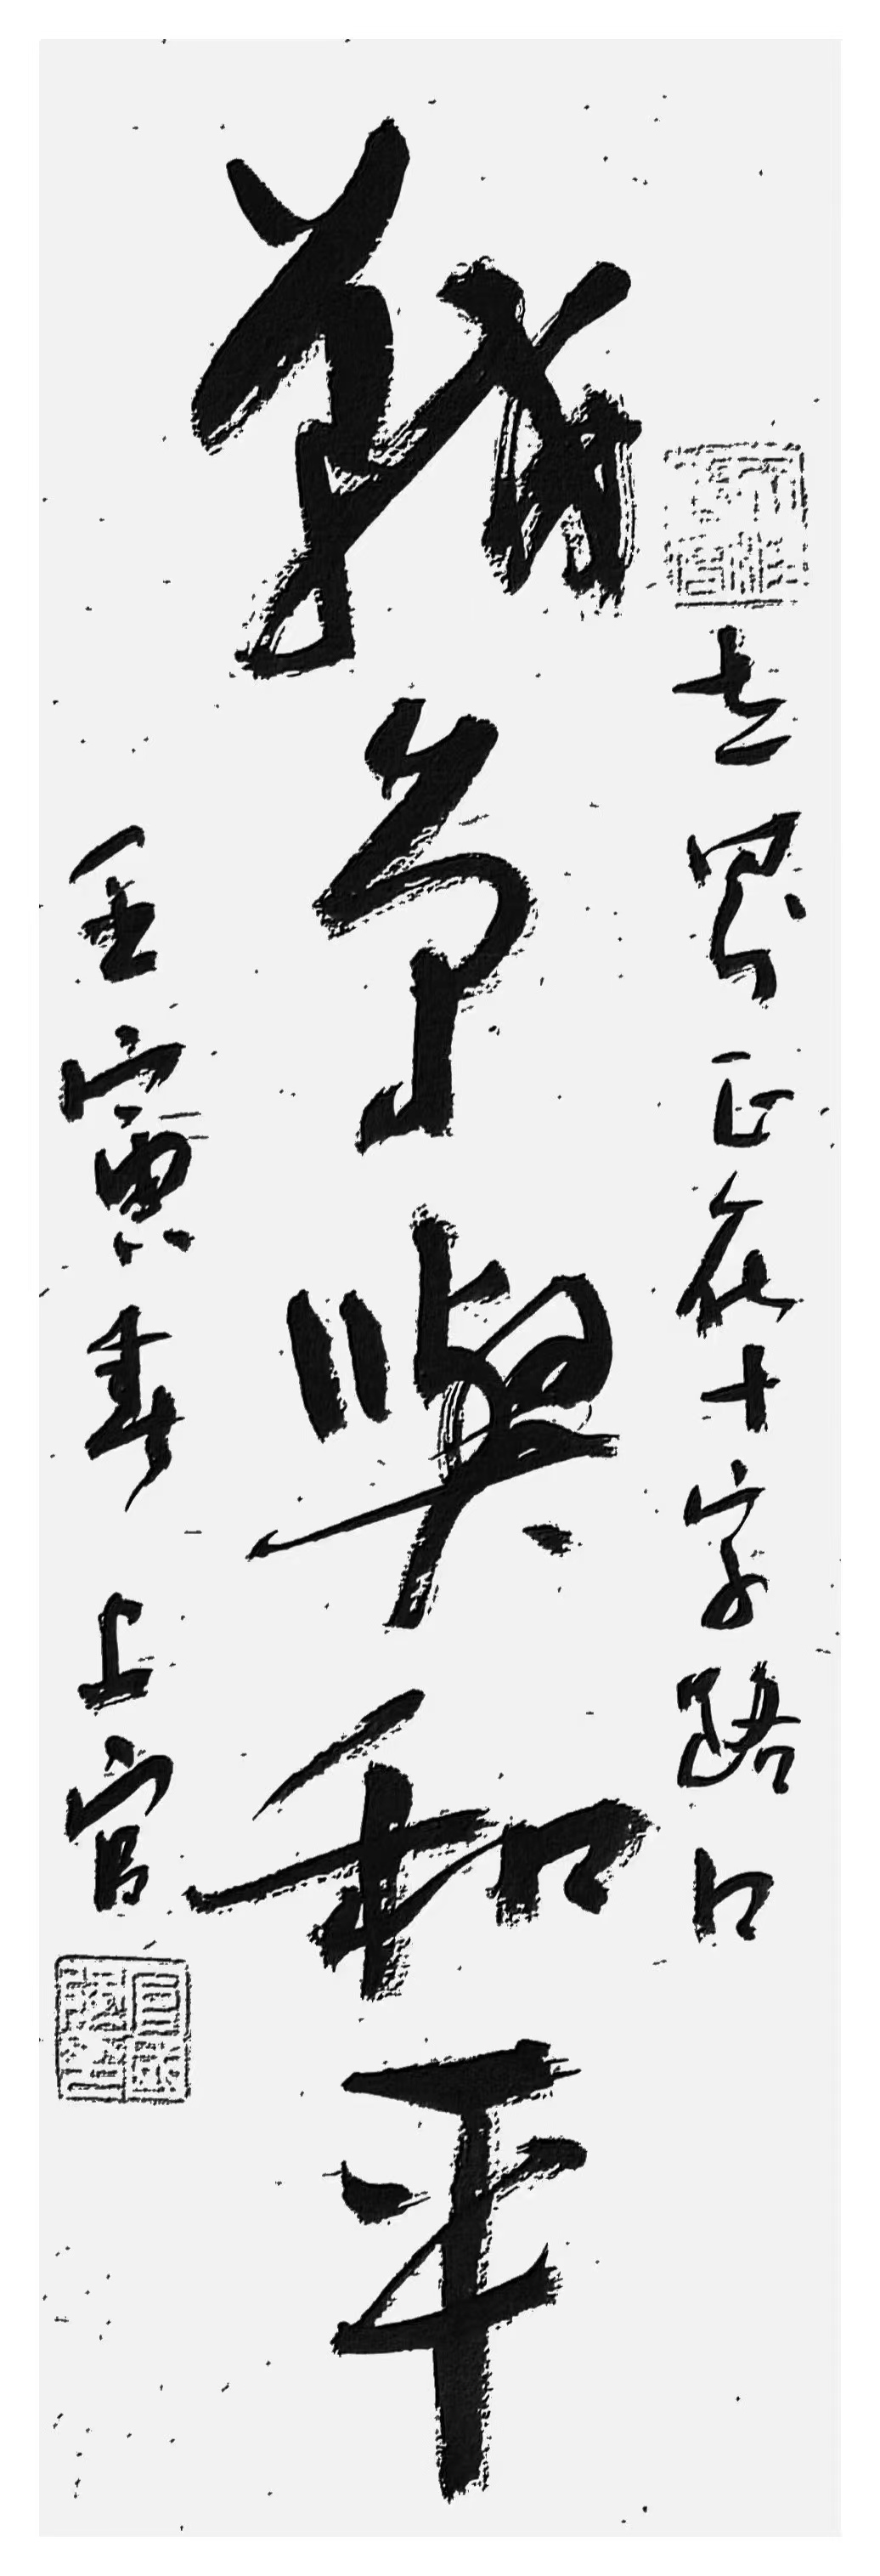 世界正在十字路口
戰爭與和平
壬寅春 上官